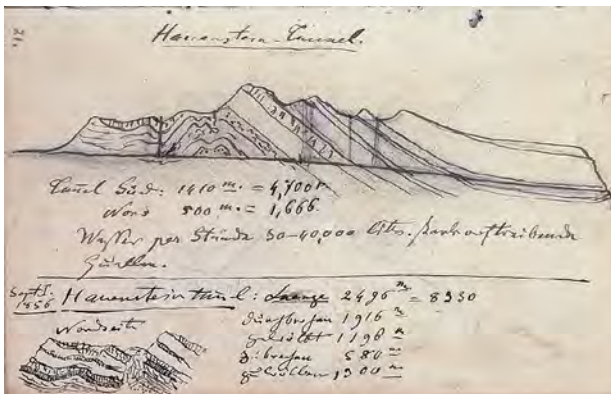 Hauenstein-Tunnel.
Tunel Süd: 1410 m. = 4,700
Nord 500 m. = 1,666.
Wasser per Stunde 30–40,000 Litr.
Sept. 1.
1856
Hauensteintunel: Laenge 2496 m =
Nordseite
durchbrochen 1916 m
gewölbt 1196 m
z. brechen 580 m
z. wölben 1300 m